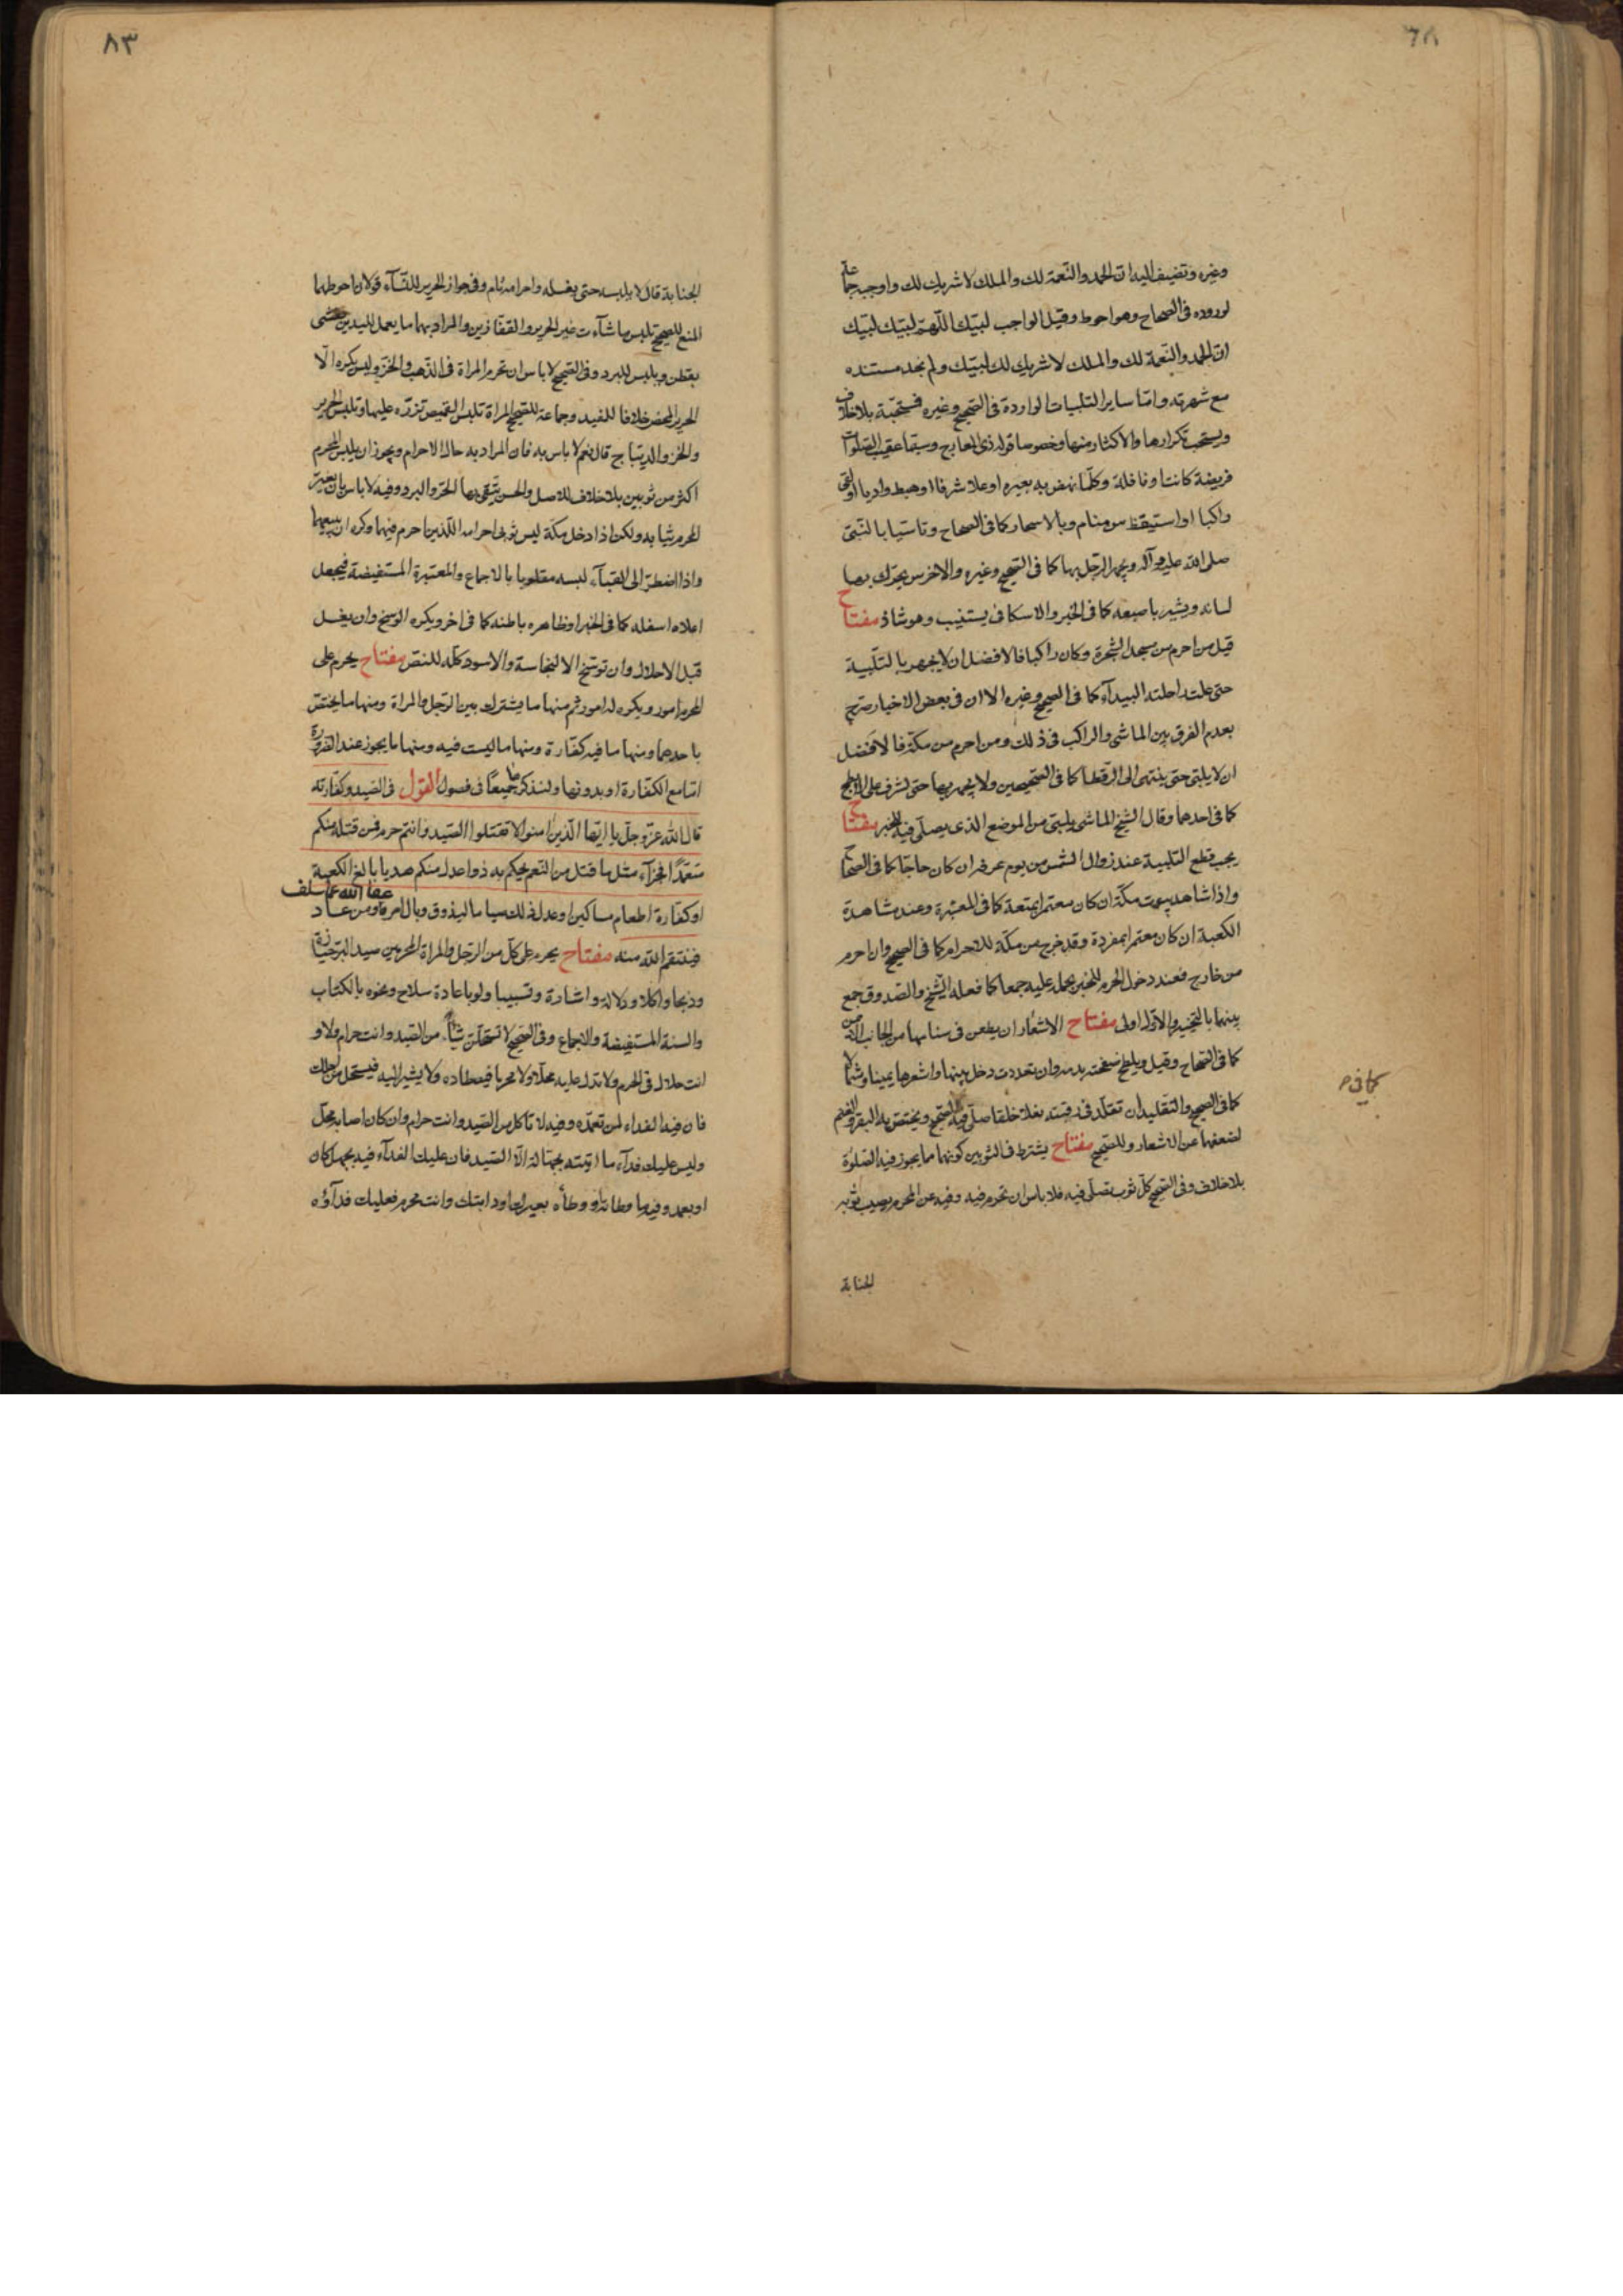 وغيره وتضيف اليه ان الحمد والنعمة لك والملك لا شريك لك واوجبه جماعة
لوروده في الصحاح وهو احوط وقيل الواجب لبيك اللهم لبيك لبيك
ان الحمد والنعمة لك والملك لا شريك لك لبيك ولم نجد مستنده
مع شهرته واما ساير التلبيات الواردة في الصحيح وغيره فمستحبة بلا خلاف
ويستحب تكرارها والاكثار منها وخصوصا قوله ذي المعارج وسيما عقيب الصلوات
فريضة كانت او نافلة وكلما نهض به بعيره او علا شرفا او هبط واديا او لقي
راكبا او استيقظ من منام وبالاسحار كما في الصحاح وتاسيا بالنبي
صلى الله عليه وآله ويجهر الرجل بها كما في الصحيح وغيره والاخرس يحرك بها
لسانه ويشير باصبعه كما في الخبر والاسكافي يستنيب وهو شاذ مفتاح
قيل من احرم من مسجد الشجرة وكان راكبا فالافضل ان لا يجهر بالتلبية
حتى علت راحلته البيداء كما في الصحيح وغيره الا ان في بعض الاخبار صرح
بعدم الفرق بين الماشي والراكب في ذلك ومن احرم من مكة فالافضل
ان لا يلبي حتى ينتهي الى الرقطا كما في الصحيحين ولا يجهر بها حتى يشرف على الابطح
كما في احدهما وقال الشيخ الماشي يلبي من الموضع الذي يصلي فيه للخبر مفتاح
يجب قطع التلبية عند زوال الشمس من يوم عرفة ان كان حاجا كما في الصحاح
واذا شاهد بيوت مكة ان كان معتمرا بمتعة كما في المعتبرة وعند مشاهدة
الكعبة ان كان معتمرا بمفردة وقد خرج من مكة للاحرام كما في الصحيح وان احرم
من خارج فعند دخول الحرم للخبر يحمل عليه جمعا كما فعله الشيخ والصدوق جمع
بينهما بالتخيير والاول اولى مفتاح الاشعار ان يطعن في سنامها من الجانب الايمن
كما في الصحاح وقيل ويلطخ صفحته بدمه وان تعددت دخل بينها واشعرها يمينا وشمالا
كما في الصحيح والتقليد ان تقلد في رقبته نعلا خلقا صلى فيه للصحيح ويختص به البقر والغنم
لضعفهما عن الاشعار وللصحيح مفتاح يشترط في الثوبين كونهما مما يجوز فيه الصلوة
بلا خلاف وفي الصحيح كل ثوب تصلي فيه فلا باس ان تحرم فيه وفيه عن المحرم يصيب ثوبه
الجنابة
كما في
٨٣
الجنابة قال لا يلبسه حتى يغسله واحرامه تام وفي جواز الحرير للنساء قولان احوطهما
المنع للصحيح تلبس ما شاءت غير الحرير والقفازين والمراد بهما ما يعمل لليدين يحشى
بقطن ويلبس للبرد وفي الصحيح لا باس ان تحرم المراة في الذهب والخز وليس يكره الا
الحرير المحض خلافا للمفيد وجماعة للصحيح المراة تلبس القميص تزره عليها وتلبس الحرير
والخز والديباج قال نعم لا باس به فان المراد به حال الاحرام ويجوز ان يلبس المحرم
اكثر من ثوبين بلا خلاف للاصل والحسن يتقي بها الحر والبرد وفيه لا باس بان يغير
المحرم ثيابه ولكن اذا دخل مكة لبس ثوبي احرامه اللذين احرم فيهما وكره ان يبيعهما
واذا اضطر الى القباء لبسه مقلوبا بالاجماع والمعتبرة المستفيضة فيجعل
اعلاه اسفله كما في الخبر او ظاهره باطنه كما في اخر ويكره الوسخ وان يغسل
قبل الاحلال وان توسخ الا لنجاسة والاسود كله للنص مفتاح يحرم على
المحرم امور ويكره له امور ثم منها ما يشترك بين الرجل والمراة ومنها ما يختص
باحدهما ومنها ما فيه كفارة ومنها ما ليست فيه ومنها ما يجوز عند الضرورة
اما مع الكفارة او بدونها ولنذكرها جميعا في فصول القول في الصيد وكفارته
قال الله عز وجل يا ايها الذين امنوا لا تقتلوا الصيد وانتم حرم فمن قتله منكم
متعمدا فجزاء مثل ما قتل من النعم يحكم به ذوا عدل منكم هديا بالغ الكعبة
او كفارة اطعام مساكين او عدل ذلك صياما ليذوق وبال امره عفا الله عما سلف ومن عاد
فينتقم الله منه مفتاح يحرم على كل من الرجل والمراة المحرمين صيد البر حيازة
وذبحا واكلا ودلالة واشارة وتسبيبا ولو باعادة سلاح ونحوه بالكتاب
والسنة المستفيضة والاجماع وفي الصحيح لا تستحلن شيئا من الصيد وانت حرام ولا و
انت حلال في الحرم ولا تدل عليه محلا ولا محرما فيصطاده ولا يشير اليه فيستحل من اجلك
فان فيه الفداء لمن تعمده وفيه لا تاكل من الصيد وانت حرام وان كان اصابه محل
وليس عليك فداء ما اتيته بجهالة الا الصيد فان عليك الفداء فيه بجهل كان
او بعمد وفيه ما وطاته او وطأه بعيرك او دابتك وانت محرم فعليك فداؤه